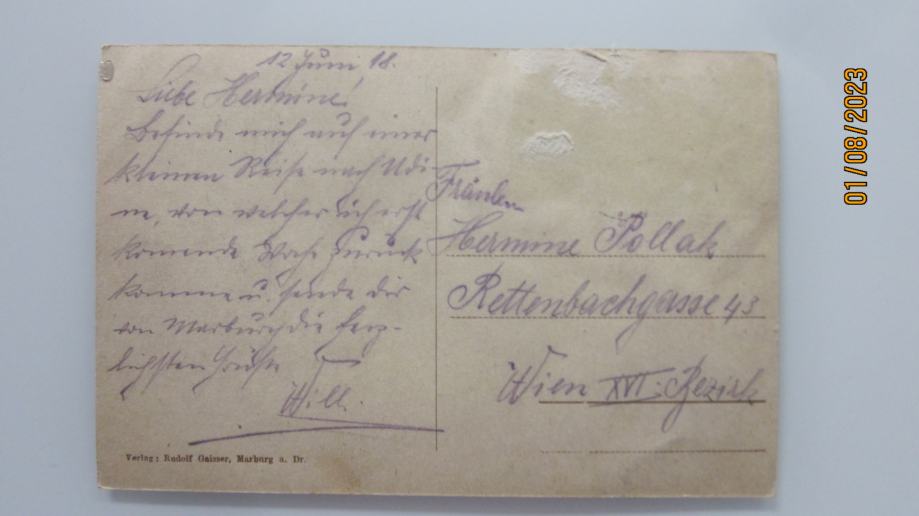 12 Juni 18.
Liebe Hermine!
Befinde mich auf einer
kleinen Reise nach Udi-
ne, von welcher ich erst
kommende Woche zurück
komme u. sende dir
von Marburg die herz-
lichsten Grüße
Willi
Verlag: Rudolf Gaisser, Marburg a. Dr.
Fräulein
Hermine Pollak
Rettenbachgasse 43
Wien XVI. Bezirk
01/08/2023